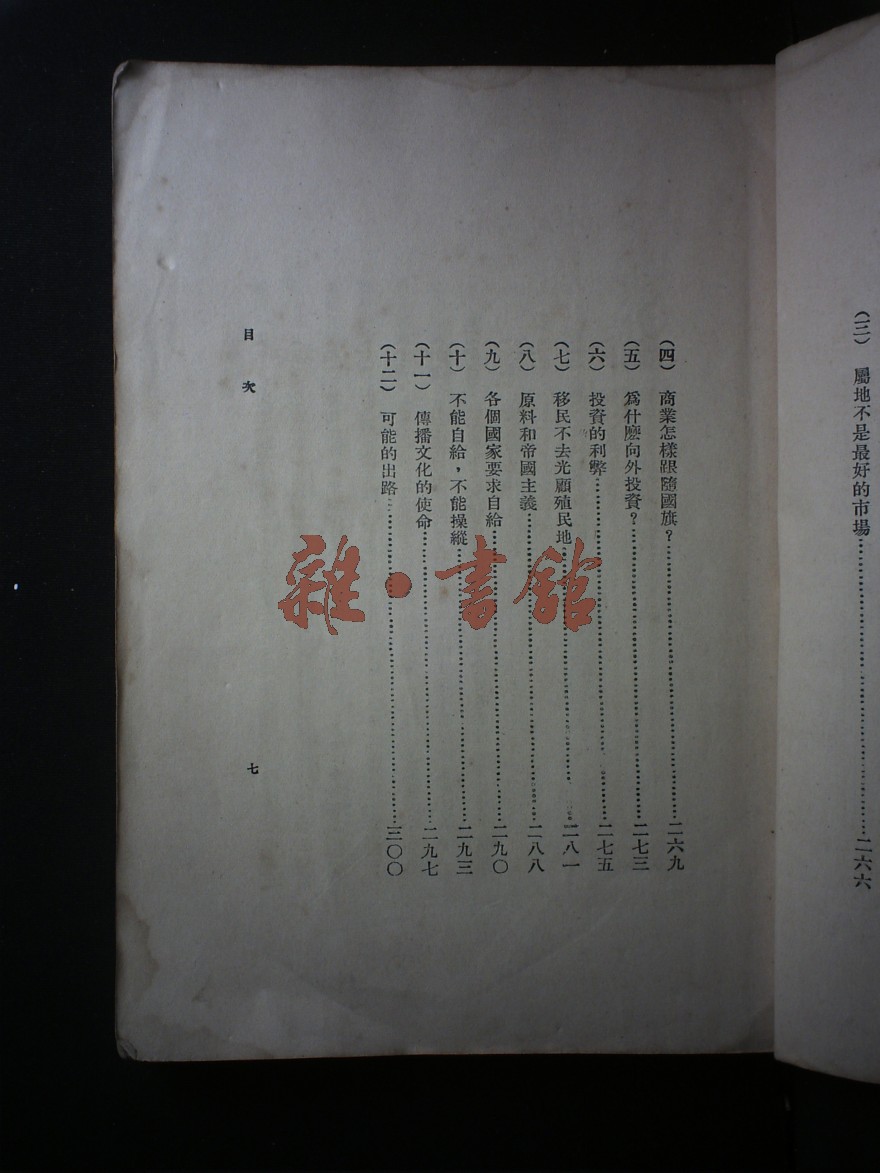 （三）　屬地不是最好的市場……………………二六六
（四）　商業怎樣跟隨國旗？……………………二六九
（五）　爲什麽向外投資？……………………二七三
（六）　投資的利弊……………………二七五
（七）　移民不去光顧殖民地……………………二八一
（八）　原料和帝國主義……………………二八八
（九）　各個國家要求自給……………………二九〇
（十）　不能自給，不能操縱……………………二九三
（十一）　傳播文化的使命……………………二九七
（十二）　可能的出路……………………三〇〇
目次
七
雜・書館